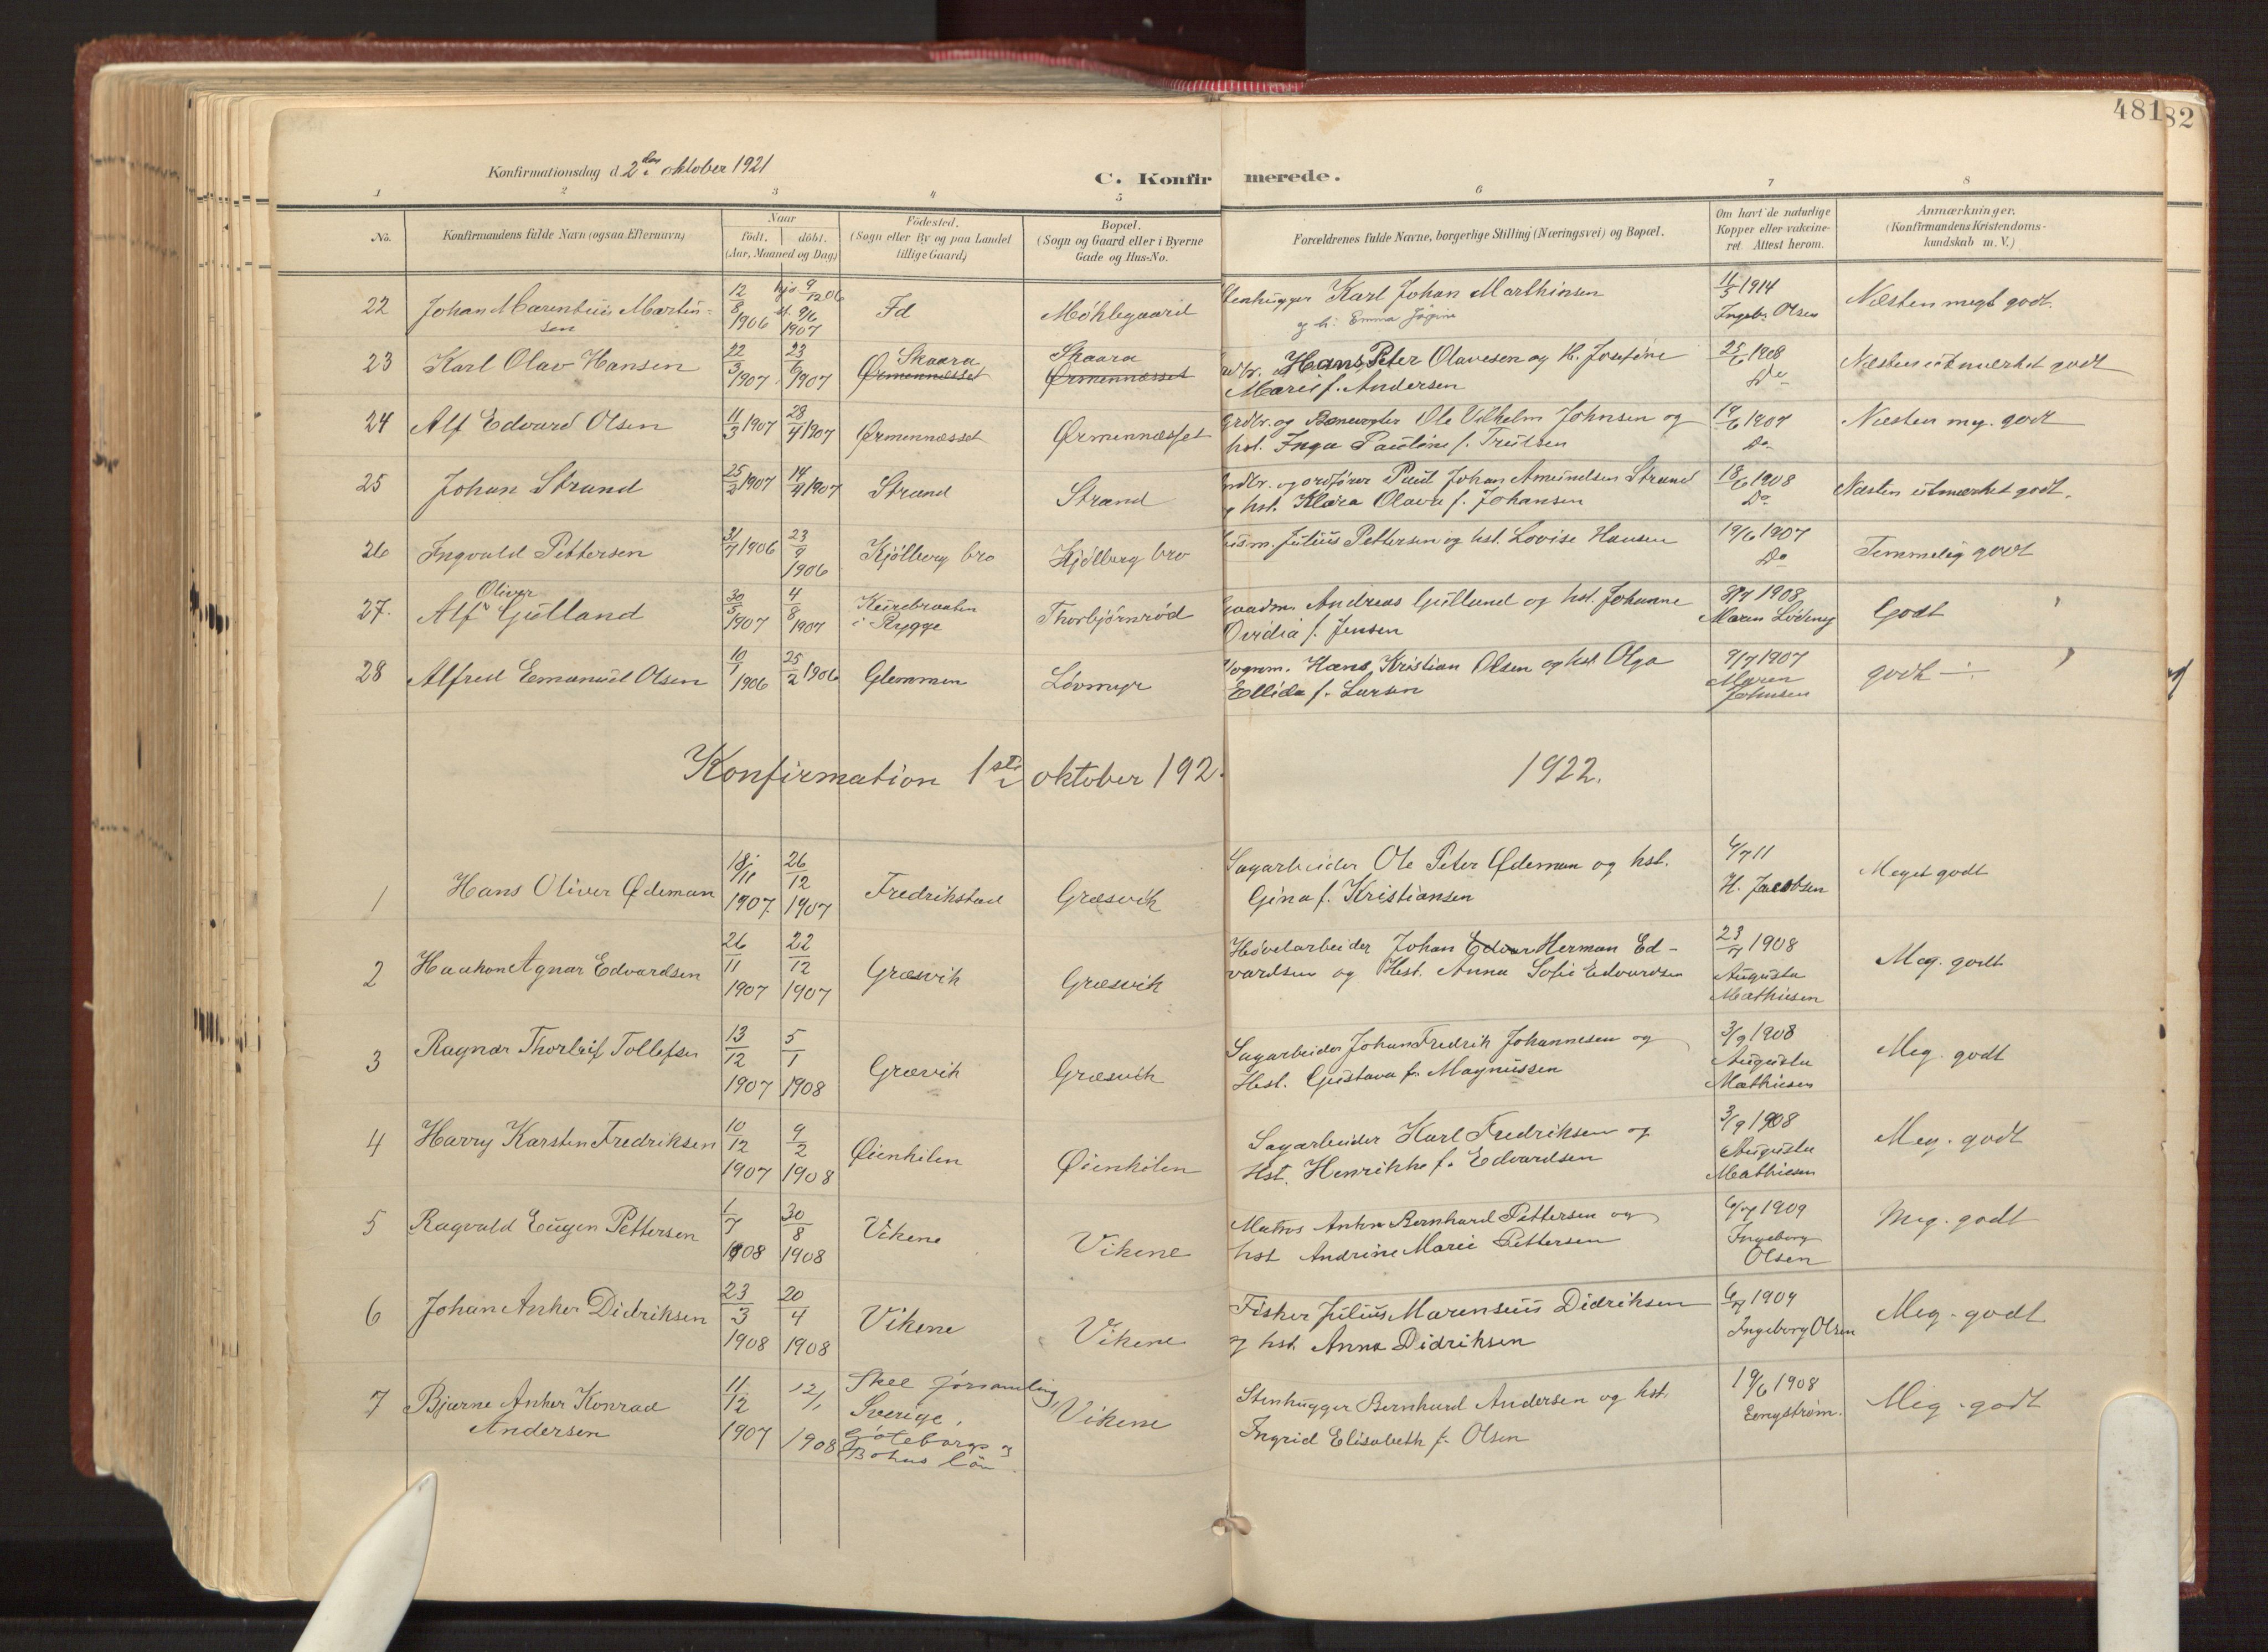 481 82
Konfirmationsdag d. 2den oktober 1921
C. Konfirmerede.
1 2 3 4 5 6 7 8
No.
Konfirmandens fulde Navn (ogsaa Efternavn)
Naar
født. døbt.
(Aar, Maaned og Dag)
Fødested.
(Sogn eller By og paa Landet
tillige Gaard)
Bopæl.
(Sogn og Gaard eller i Byerne
Gade og Hus-No.
Forældrenes fulde Navne, borgerlige Stilling (Næringsvei) og Bopæl.
Om havt de naturlige
Kopper eller vakcine-
ret. Attest herom.
Anmærkninger.
(Konfirmandens Kristendoms-
kundskab m. V.)
22 Johan Marentius Martin- 12/8 1906 hjd. 9/12 06 st. 9/6 1907 Id Møklegaard Stenhugger Karl Johan Marthinsen 11/5 1914 Næsten megt godt.
sen og h. Emma Jogine Ingeb. Olsen
23 Karl Olav Hansen 22/3 1907 23/6 1907 Skaara Skaara Hans Peter Olavesen og h. Josefine 25/6 1908 Næsten utmærket godt
Ørmennæsset Ørmennæsset Marie f. Andersen Do
24 Alf Edvard Olsen 11/3 1907 28/4 1907 Ørmennæsset Ørmennæsset Grdbr. og Banevogter Ole Vilhelm Johnsen og 19/6 1907 Næsten meg. godt
hst. Inga Pauline f. Trulsen Do
25 Johan Strand 25/2 1907 14/4 1907 Strand Strand Grdbr. og ordfører Paul Johan Amundsen Strand 18/6 1908 Næsten utmærket godt.
og hst. Klara Olava f. Johansen Do
26 Ingvald Pettersen 31/7 1906 23/9 1906 Kjølberg bro Kjølberg bro Husm. Julius Pettersen og hst. Lovise Hansen 19/6 1907 Temmelig godt
Do
Oliver
27. Alf Gulland 30/5 1907 4/8 1907 i Rygge Thorbjørnrød Andreas Gulland og hst. Johanne 8/7 1908 Godt
Ovidia f. Jensen Maren
28 Alfred Emanuel Olsen 10/1 1906 25/2 1906 Glemmen Løvmyr Vognm. Hans Kristian Olsen og hst. Olga 9/7 1907 godt ÷
Ellida f. Larsen Maren
Johnsen
Konfirmation 1ste oktober 192. 1922.
1 Hans Oliver Ødeman 18/11 1907 26/12 1907 Fredrikstad Græsvik Sagarbeider Ole Peter Ødeman og hst. 6/7 11 Meget godt
Gina f. Kristiansen H. Jacobsen
2 Haakon Agnar Edvardsen 26/11 1907 22/12 1907 Græsvik Græsvik Høvelarbeider Johan Edvar Herman Ed- 23/7 1908 Meg. godt
vardsen og Hst. Anna Sofie Edvardsen Augusta
Mathiesen
3 Ragnar Thorleif Tollefsen 13/12 1907 5/1 1908 Græsvik Græsvik Sagarbeider Johan Fredrik Johannesen og 3/9 1908 Meg. godt
Hst. Gustava f. Magnussen Augusta
Mathiesen
4 Harry Karsten Fredriksen 10/12 1907 9/2 1908 Øienkilen Øienkilen Sagarbeider Karl Fredriksen og 3/9 1908 Meg. godt
Hst. Henrikke f. Edvardsen Augusta
Mathiesen
5 Ragvald Eugen Pettersen 1/7 1908 30/8 1908 Vikene Vikene Matros Anton Bernhard Pettersen og 6/7 1909 Meg. godt
hst Andrine Marie Pettersen Ingeborg
Olsen
6 Johan Anker Didriksen 23/3 1908 20/4 1908 Vikene Vikene Fisker Julius Marensius Didriksen 6/7 1909 Meg. godt
og hst. Anna Didriksen Ingeborg Olsen
7 Bjarne Anker Konrad 11/12 1907 12/1 1908 Skee forsamling, Vikene Stenhugger Bernhard Andersen og hst. 19/6 1908 Meg. godt
Andersen Sverige, Ingrid Elisabeth f. Olsen Engstrøm.
Göteborgs og
Bohus län